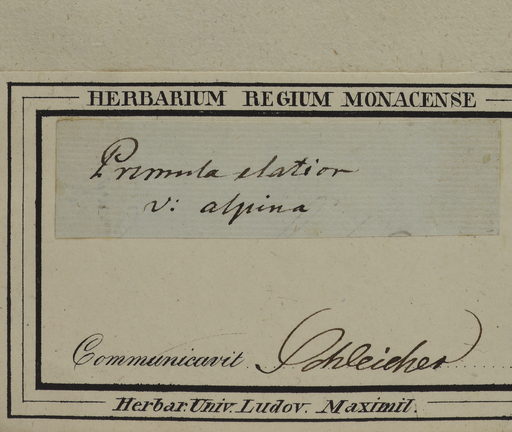 HERBARIUM REGIUM MONACENSE
Primula elatior
v: alpina
Communicavit Schleicher
Herbar. Univ. Ludov. Maximil.